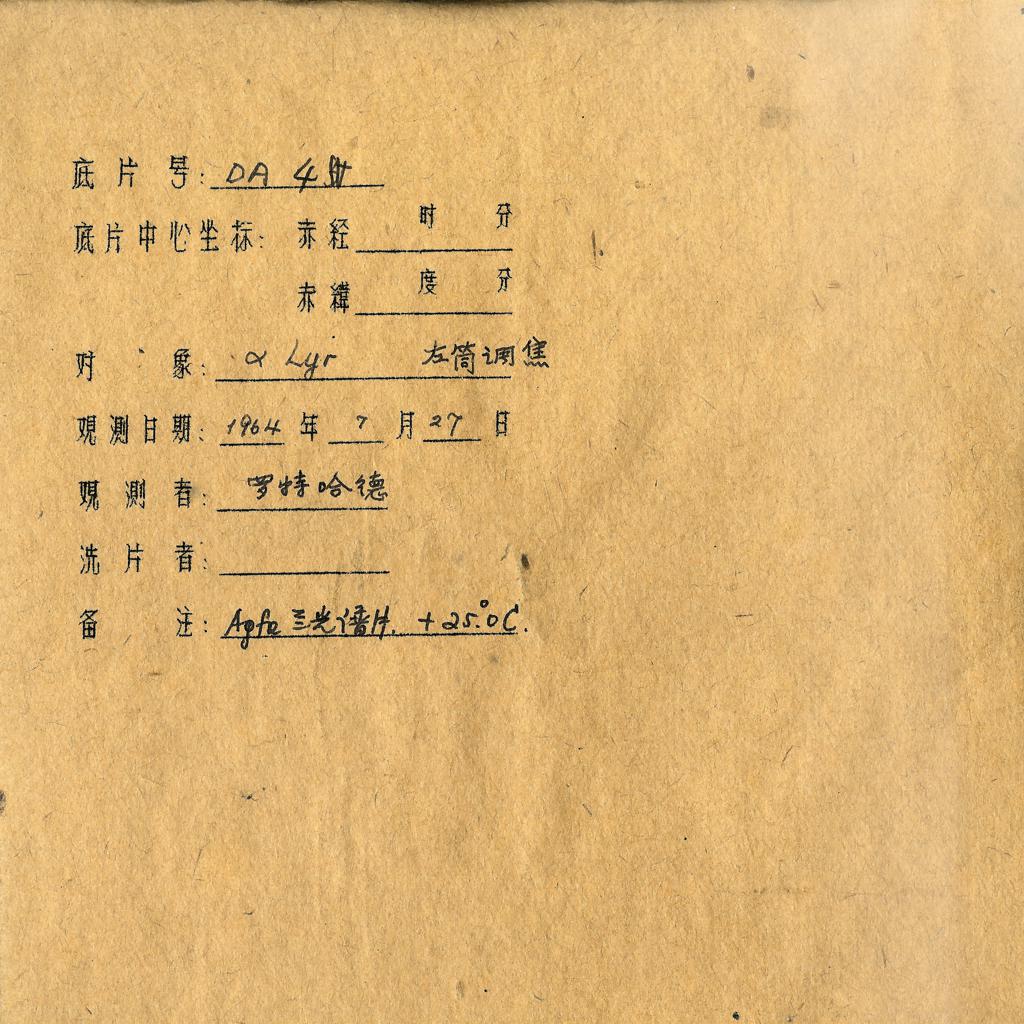 底片号: DA 4
时 分
底片中心坐标: 赤经
度 分
赤緯
对 象: α Lyr 左筒调焦
观测日期: 1964 年 7 月 27 日
观测者: 罗特哈德
洗片者:
备 注: Agfa 兰光谱片. +25.°0C.